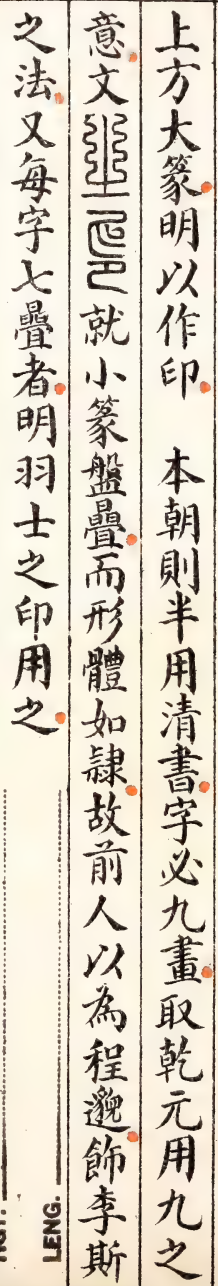 上方大篆明以作印　本朝則半用清書字必九畫取乾元用九之
意文坐邑就小篆盤疊而形體如隸故前人以為程邈飾李斯
之法又每字七疊者明羽士之印用之
LENG.